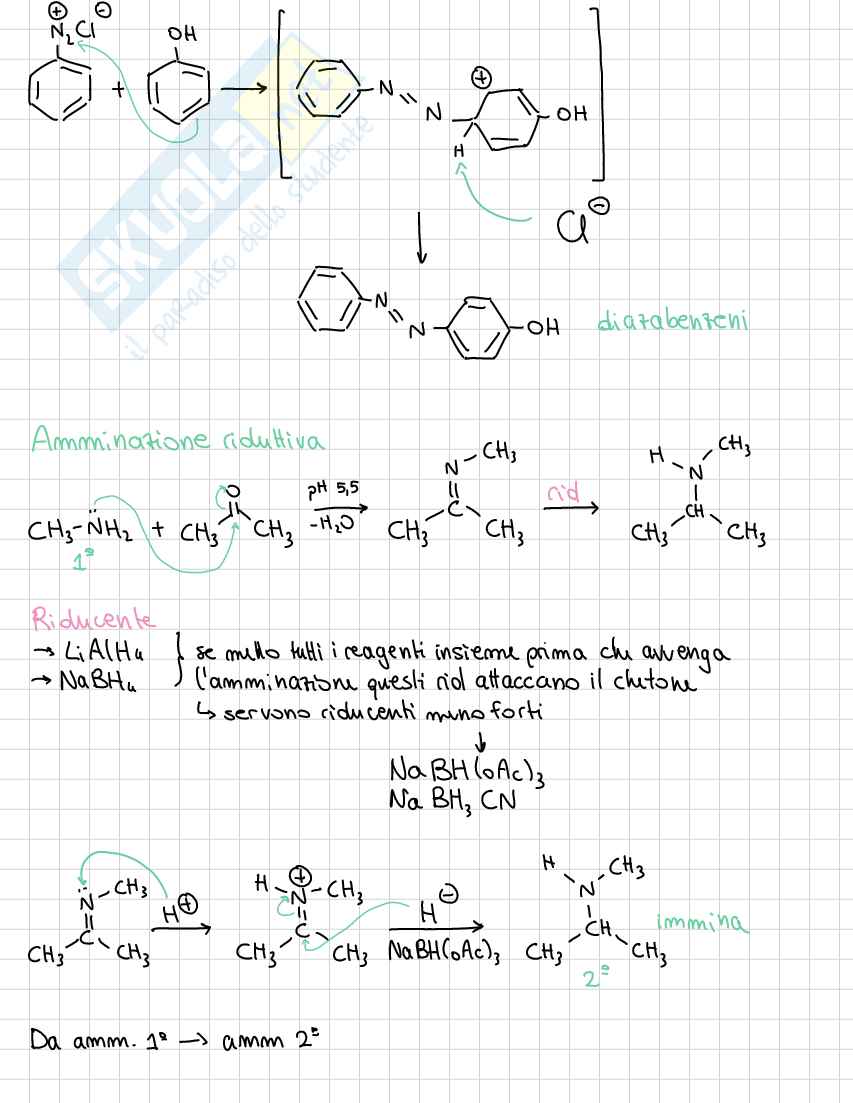 ⊕ ⊖
N₂Cl + OH → [ N=N ⊕ H OH ]
Cl⊖
SKUOLA.net
il paradiso dello studente
N=N OH diazabenzeni
Amminazione riduttiva
CH₃-N̈H₂ + CH₃ O CH₃ pH 5,5 -H₂O → N-CH₃ C CH₃ CH₃ rid → H N CH₃ CH CH₃ CH₃
1º
Riducente
→ LiAlH₄ } se metto tutti i reagenti insieme prima che avvenga
→ NaBH₄ } l'amminazione questi rid attaccano il chetone
↳ servono riducenti meno forti
↓
NaBH(OAc)₃
NaBH₃CN
N̈-CH₃ C CH₃ CH₃ H⊕ → H-N⊕-CH₃ C CH₃ CH₃ H⊖ NaBH(OAc)₃ → H N CH₃ CH CH₃ CH₃ immina
2º
Da amm. 1º → amm 2º